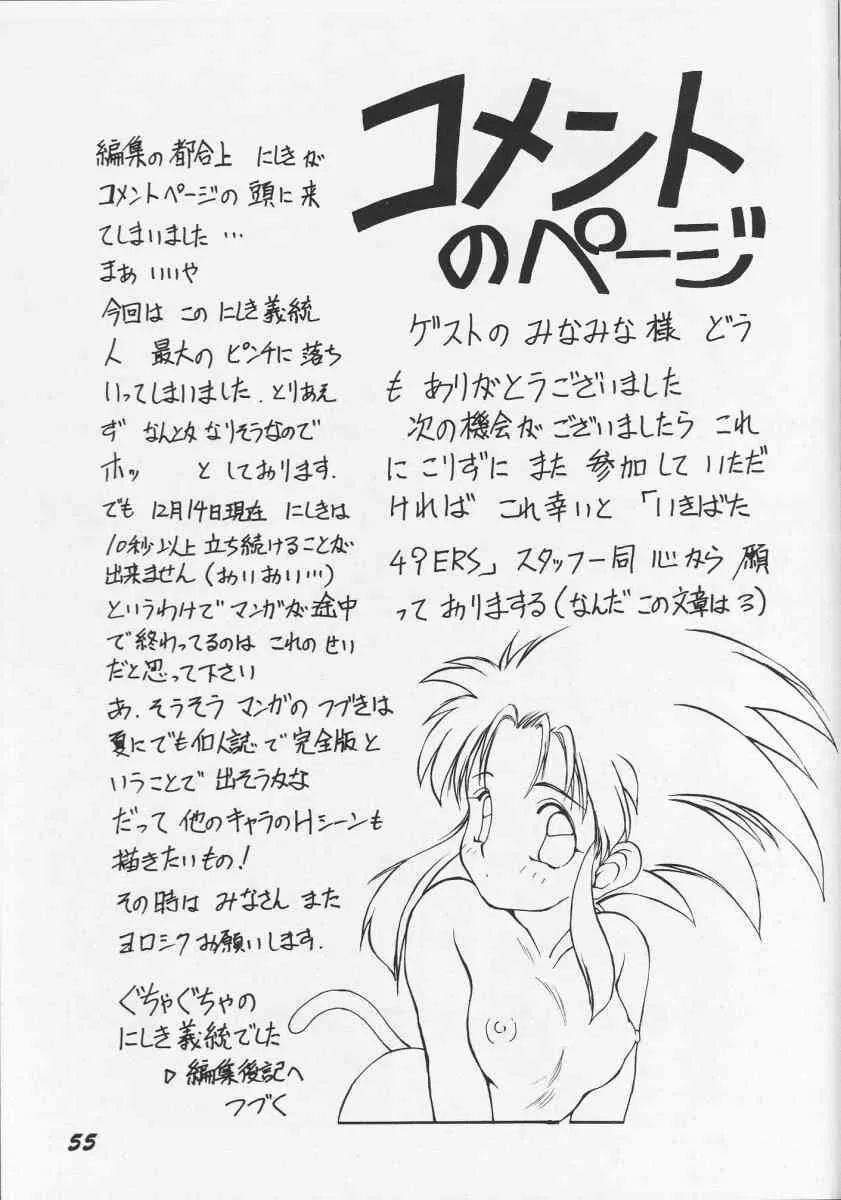 コメント
のページ
編集の都合上 にしきが
コメントページの頭に来
てしまいました…
まあ いいや
今回は この にしき義統
人 最大の ピンチに 落ち
いってしまいました. とりあえ
ず なんとか なりそうなので
ホッ としております.
でも 12月14日現在 にしきは
10秒以上 立ち続けることが
出来ません(おいおい…)
というわけで マンガが 途中
で終わってるのは これの せい
だと思って下さい
あ. そうそう マンガの つづきは
夏にでも個人誌で完全版と
いうことで 出そうかな
だって 他のキャラのHシーンも
描きたいもの!
その時は みなさん また
ヨロシクお願いします.
ぐちゃぐちゃの
にしき義統でした
▷ 編集後記へ
つづく
ゲストの みなみな様 どう
も ありがとうございました
次の機会が ございましたら これ
に こりずに また 参加して いただ
ければ これ幸いと 「いきばた
49ERS」スタッフ一同 心から 願
って おりまする(なんだ この文章は3)
55